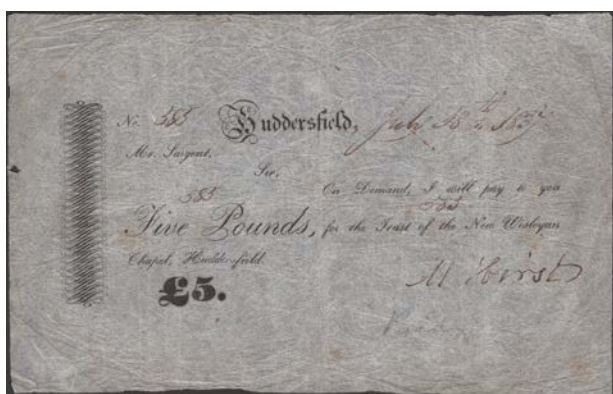 No. 585 Huddersfield, July 18th
Mr. Sargent,
Sir,
On Demand, I will pay to you
585 585
Five Pounds, for the Trust of the New Wesleyan
Chapel, Huddersfield.
£5. M Hirst